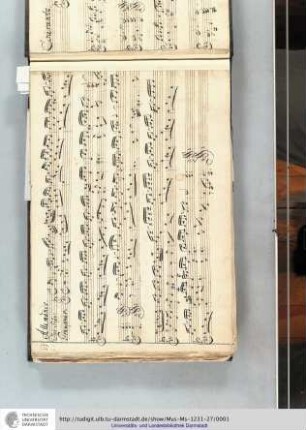 Allemande
Courante
TECHNISCHE
UNIVERSITÄT
DARMSTADT
http://tudigit.ulb.tu-darmstadt.de/show/Mus-Ms-1231-27/0001
Universitäts- und Landesbibliothek Darmstadt